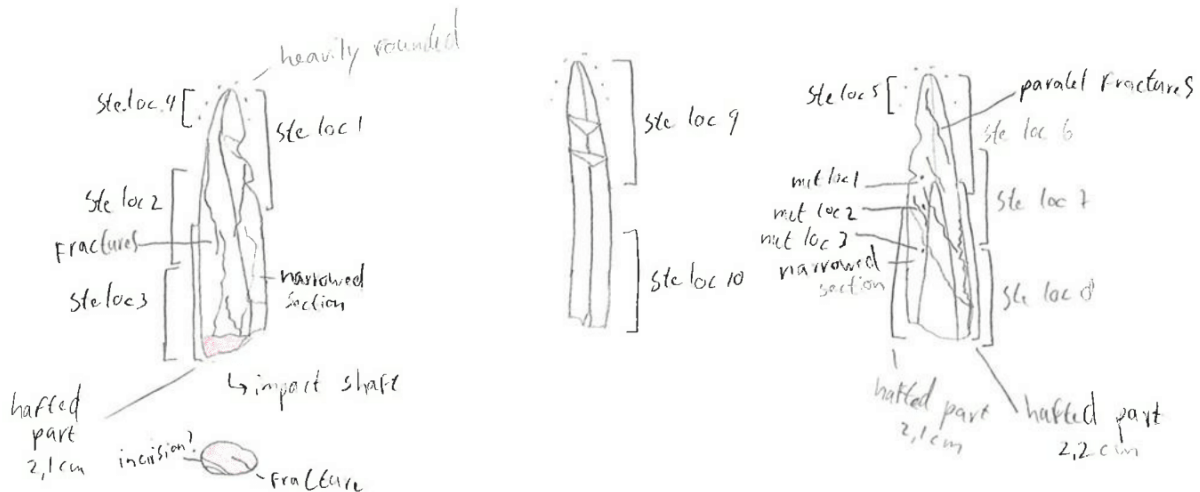 heavily rounded
ste loc 4
ste loc 1
ste loc2
Fractures
narrowed
section
ste loc3
↳ impact shaft
hafted
part
2,1cm
incision?
Fracture
ste loc 9
ste loc 10
ste loc 5
paralel Fractures
ste loc 6
mut loc1
mut loc2
mut loc 3
narrowed
section
ste loc 7
ste loc 8
hafted part
2,1cm
hafted part
2,2 cm